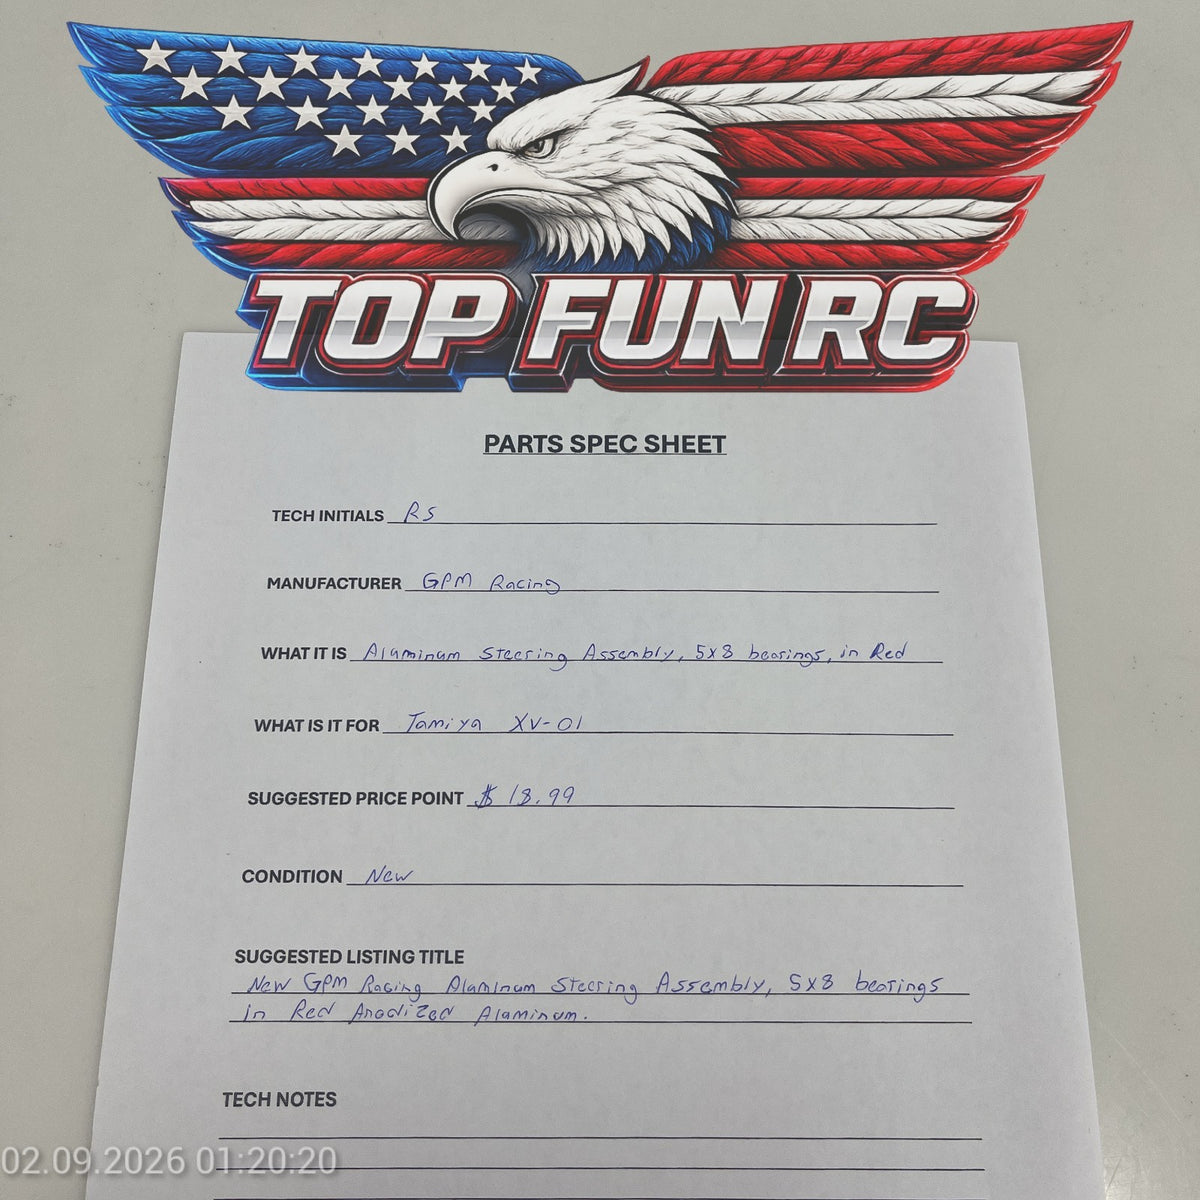 TOP FUN RC
PARTS SPEC SHEET
TECH INITIALS RS
MANUFACTURER GPM Racing
WHAT IT IS Aluminum Steering Assembly, 5x8 bearings, in Red
WHAT IS IT FOR Tamiya XV-01
SUGGESTED PRICE POINT $ 18.99
CONDITION New
SUGGESTED LISTING TITLE
New GPM Racing Aluminum Steering Assembly, 5x8 bearings
in Red Anodized Aluminum.
TECH NOTES
02.09.2026 01:20:20